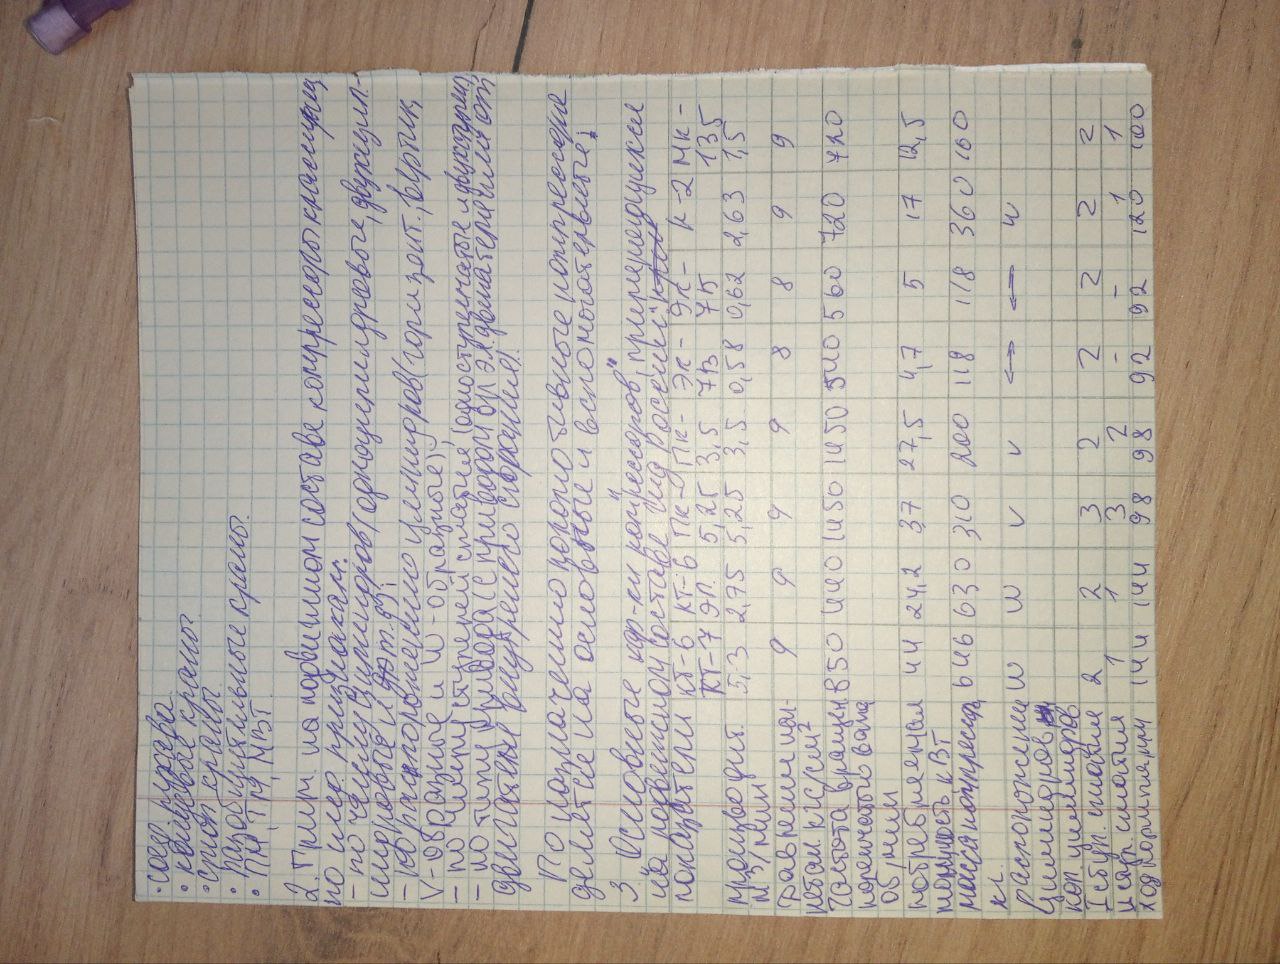 • соед рукава
• концевые краны
• стоп краны.
• разобщительные краны.
• ПМ, ТМ, МВТ
2. Прим. на подвижном составе компрессоры классифиц
по след признакам:
- по числу цилиндров (одноцилиндровые, двухцил-
индровые и т.д);
- по расположению цилиндров (горизонт., вертик,
V-образное и W-образные);
- по числу ступеней сжатия (одноступенчатые и двухступ,
- по типу привода (с приводом от эл. двигателя или от
двигателя внутреннего сгорания).
По назначению локомотивные компрессоры
делятся на основные и вспомогательные;
3. Основные хар-ки компрессоров, применяющихся
на подвижном составе жд России:
показатели КТ-6 КТ-6 ПК- ПК- ЭК- ЭК- К-2 МК-
КТ-7 Эл. 5,25 3,5 7В 7В 135
производит. 5,3 2,75 5,25 3,5 0,58 0,62 2,63 1,5
м3/мин
давление 9 9 9 9 8 8 9 9
кгс/см²
частота вращен 850 440 1450 1450 540 560 720 720
коленчатого вала
об мин
потребляемая 44 24,2 37 27,5 4,7 5 17 12,5
мощность кВт
масса компрессора 646 630 310 200 118 118 360 160
кг.
расположение W W V V ← ← W
цилиндров
кол цилиндров
I ступ сжатия 2 2 3 2 2 2 2 2
II ступ сжатия 1 1 3 2 - - 1 1
ход поршня мм 144 144 98 98 92 92 120 100